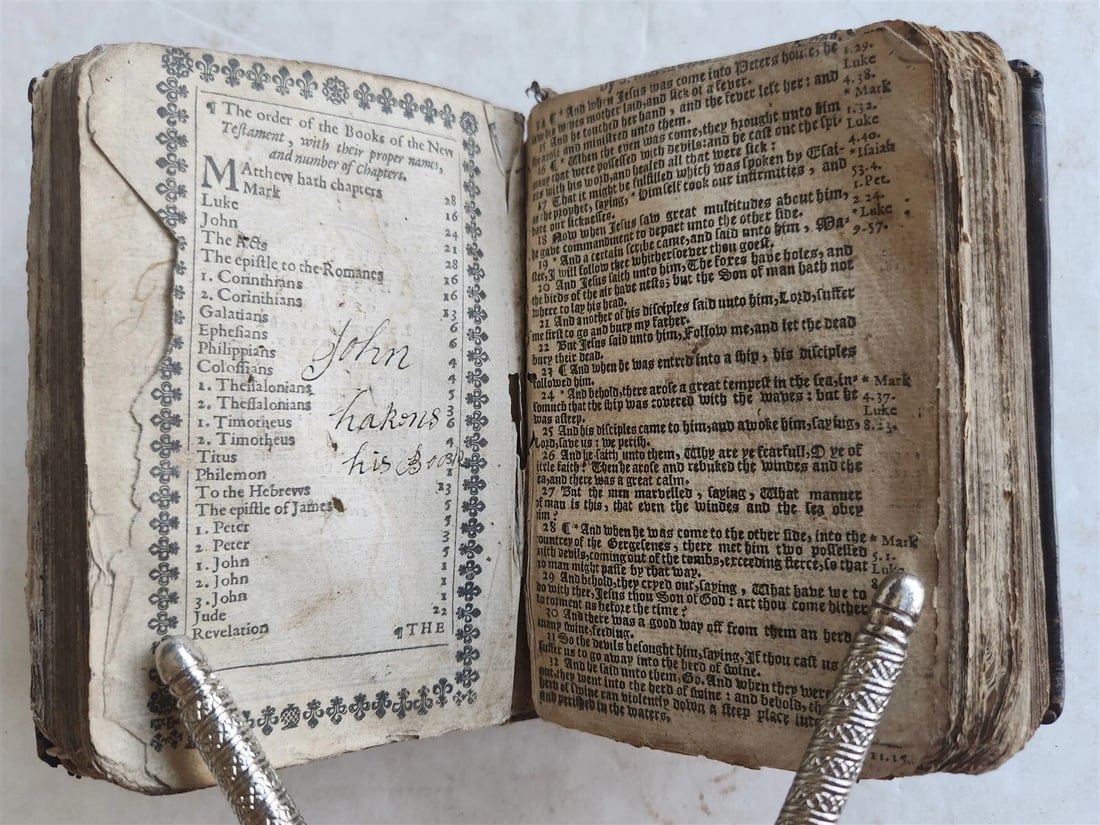 ¶ The order of the Books of the New
Testament, with their proper names,
and number of Chapters.
MAtthevv hath chapters 28
Mark 16
Luke 24
John 21
The Acts 28
The epistle to the Romanes 16
1. Corinthians 16
2. Corinthians 13
Galatians 6
Ephesians 6
Philippians 4
Colossians 4
1. Thessalonians 5
2. Thessalonians 3
1. Timotheus 6
2. Timotheus 4
Titus
Philemon 1
To the Hebrevvs 13
The epistle of James 5
1. Peter 5
2. Peter 3
1. John 5
2. John 1
3. John 1
Jude 1
Revelation 22
¶THE
John
hakens
his Book
14 ¶ * And when Jesus was come into Peters house, he
wives mother laid, and sick of a fever.
And he touched her hand, and the fever left her: and
arose and ministred unto them.
16 ¶ * When the even was come, they brought unto him
many that were possessed with devils: and he cast out the spi-
with his word, and healed all that were sick:
17 That it might be fulfilled which was spoken by Esai-
the prophet, saying, * Himself took our infirmities, and
bare our sicknesses.
18 Now when Jesus saw great multitudes about him,
he gave commandment to depart unto the other side.
19 * And a certain scribe came, and said unto him, Ma-
ster, I will follow thee whithersoever thou goest.
20 And Jesus saith unto him, The foxes have holes, and
the birds of the air have nests; but the Son of man hath not
where to lay his head.
21 And another of his disciples said unto him, Lord, suffer
me first to go and bury my father.
22 But Jesus said unto him, Follow me, and let the dead
bury their dead.
23 ¶ And when he was entred into a ship, his disciples
followed him.
24 * And behold, there arose a great tempest in the sea, in-
somuch that the ship was covered with the waves: but he
was asleep.
25 And his disciples came to him, and awoke him, saying,
Lord, save us: we perish.
26 And he saith unto them, Why are ye fearfull, O ye of
little faith? Then he arose and rebuked the windes and the
sea, and there was a great calm.
27 But the men marvelled, saying, What manner
of man is this, that even the windes and the sea obey
him?
28 ¶ * And when he was come to the other side, into the
countrey of the Gergesenes, there met him two possessed
with devils, coming out of the tombs, exceeding fierce, so that
no man might passe by that way.
29 And behold, they cryed out, saying, What have we to
do with thee, Jesus thou Son of God: art thou come hither
to torment us before the time?
30 And there was a good way off from them an herd
many swine, feeding.
31 So the devils besought him, saying, If thou cast us
suffer us to go away into the herd of swine.
32 And he said unto them, Go. And when they were
out, they went into the herd of swine: and behold, th
herd of swine ran violently down a steep place into
and perished in the waters.
1.29.
Luke
4.38.
* Mark
1.32.
Luke
4.40.
*Isaiah
53.4.
1. Pet.
2.24.
*Luke
9.57.
* Mark
4.37.
Luke
8.23.
* Mark
5.1.
Luke
8
21.15.